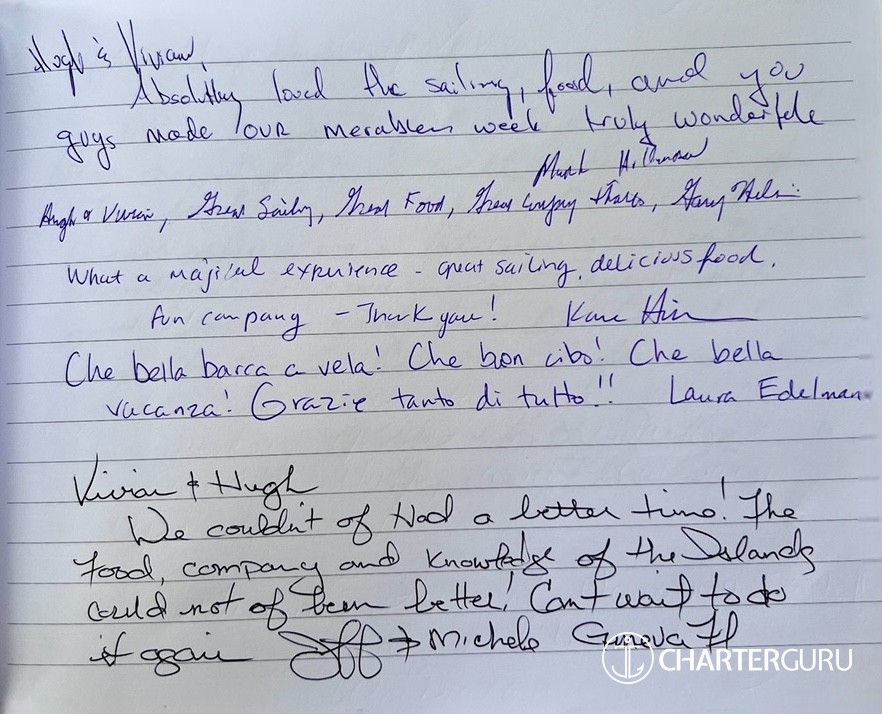 Hugh & Vivian,
Absolutley loved the sailing, food, and you
guys made our week truly wonderfule
Mark H.
Hugh & Vivian, Great Sailing, Great Food, Great Company thanks, Gary
What a majical experience - great sailing, delicious food,
fun company - Thank you!
Che bella barca a vela! Che bon cibo! Che bella
vacanza! Grazie tanto di tutto!! Laura Edelman
Vivian & Hugh
We couldn't of Had a better time! The
Food, company and Knowledge of the Islands
could not of been better! Can't wait to do
it again Jeff & Michele
CHARTERGURU